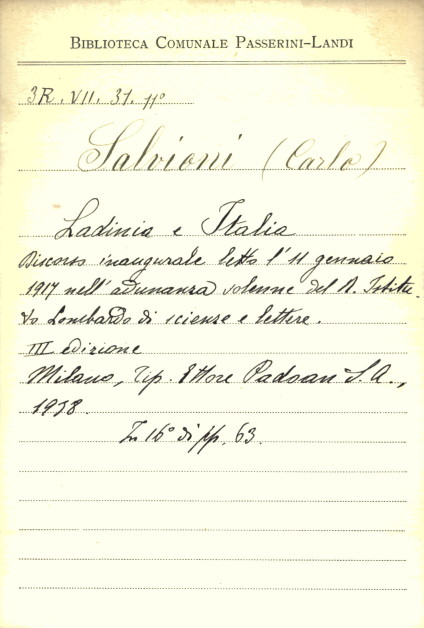 BIBLIOTECA COMUNALE PASSERINI-LANDI
3R. VII. 31. 11º
Salvioni (Carlo)
Ladinia e Italia
Discorso inaugurale letto l'11 gennaio
1917 nell'adunanza solenne del R. Istitu-
to Lombardo di scienze e lettere.
III edizione
Milano, Tip. Ettore Padoan S.A.,
1938.
In 16º di pp. 63.